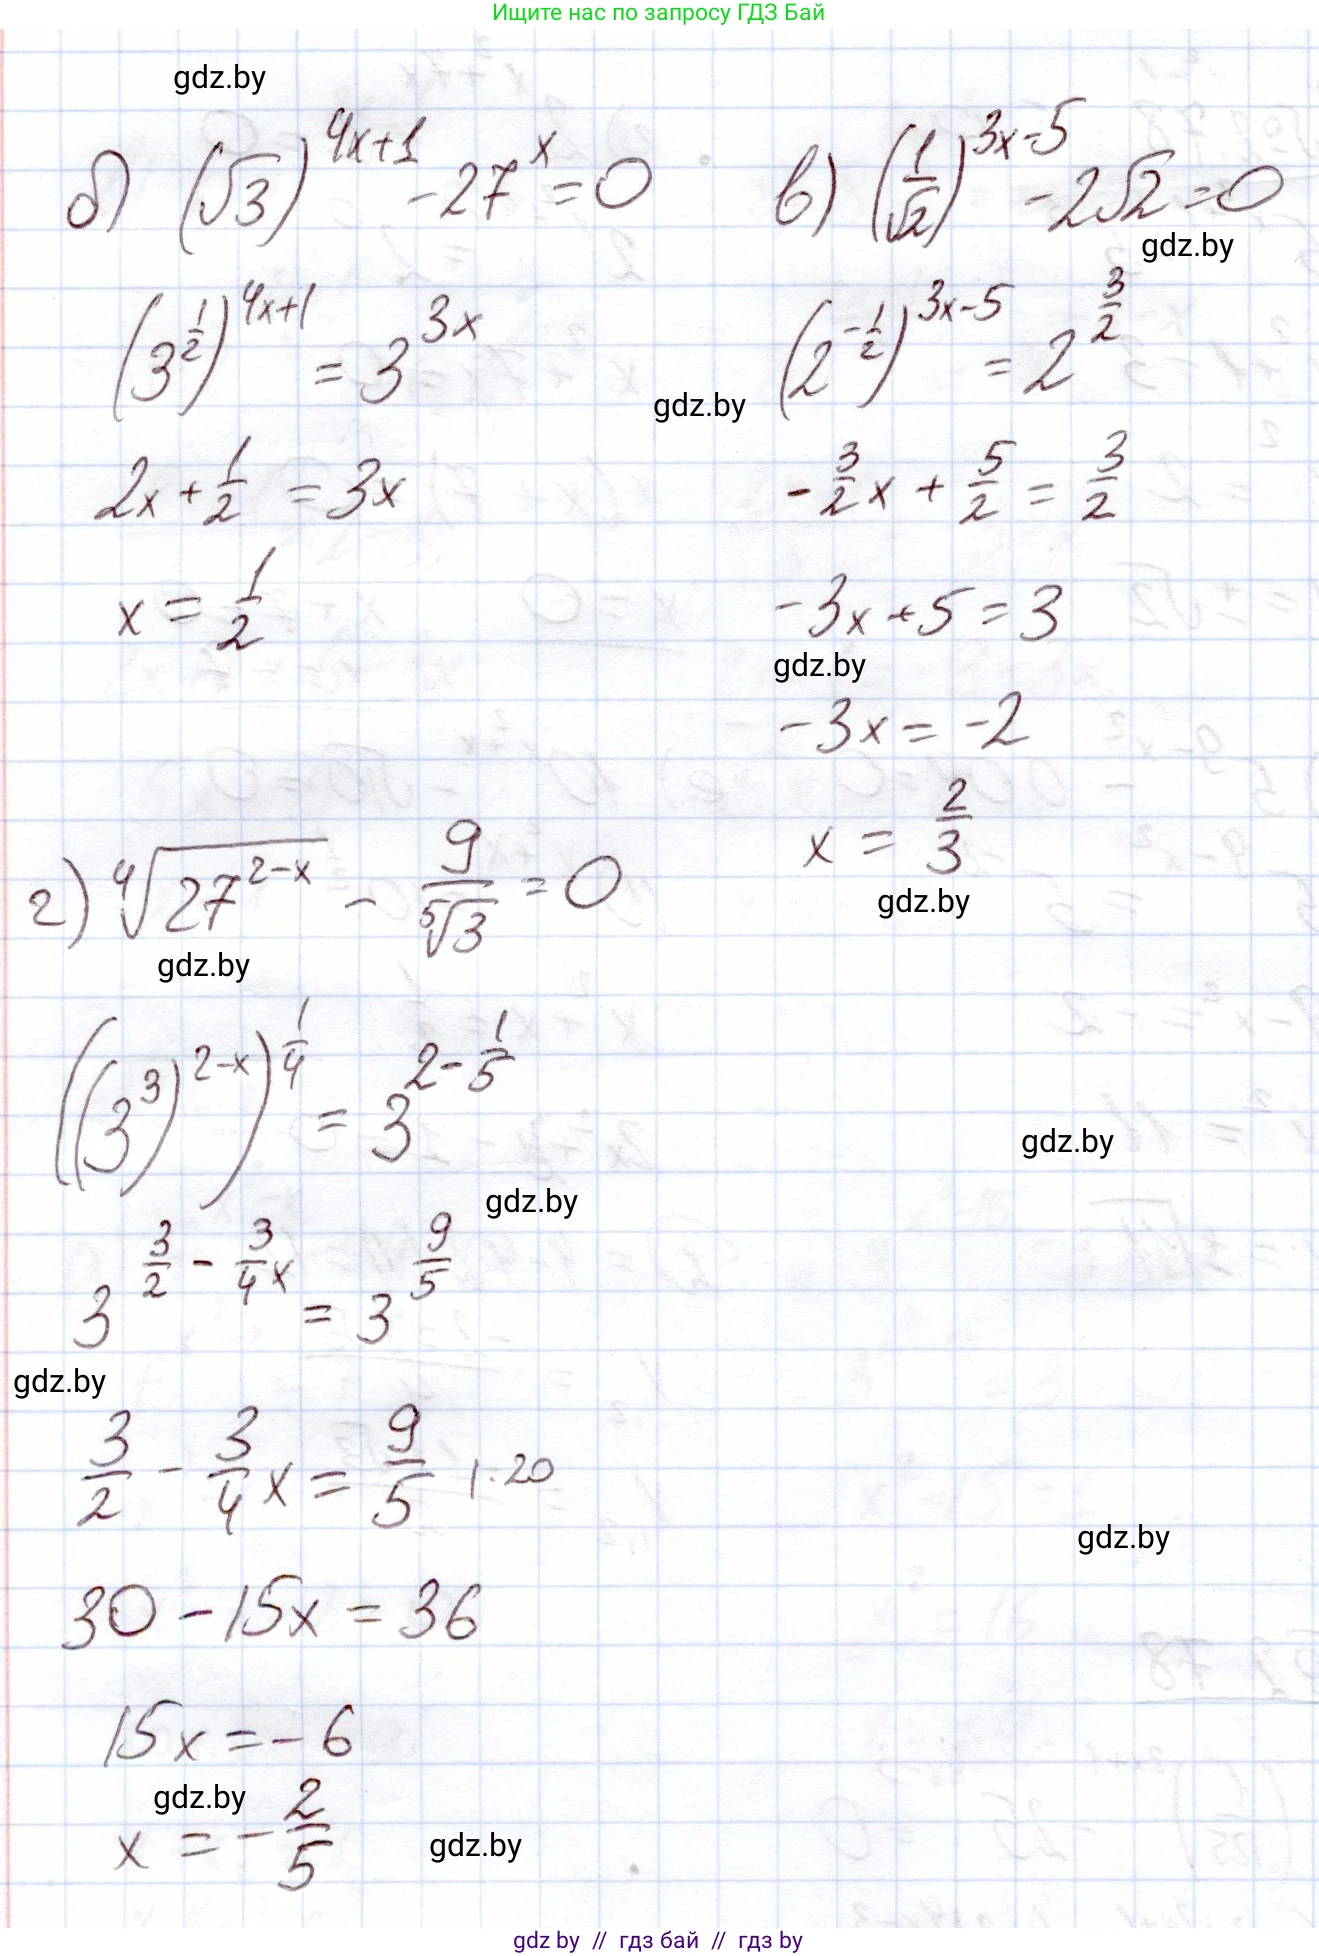 Ищите нас по запросу ГДЗ Бай
gdz.by
б) (√3)^(4x+1) - 27^x = 0
(3^(1/2))^(4x+1) = 3^(3x)
2x + 1/2 = 3x
x = 1/2
в) (1/√2)^(3x-5) - 2√2 = 0
gdz.by
(2^(-1/2))^(3x-5) = 2^(3/2)
gdz.by
-3/2 x + 5/2 = 3/2
-3x + 5 = 3
gdz.by
-3x = -2
x = 2/3
gdz.by
г) ⁴√(27^(2-x)) - 9/⁵√3 = 0
gdz.by
((3^3)^(2-x))^(1/4) = 3^(2-1/5)
gdz.by
gdz.by
3^(3/2 - 3/4 x) = 3^(9/5)
gdz.by
3/2 - 3/4 x = 9/5 | · 20
gdz.by
30 - 15x = 36
15x = -6
gdz.by
x = -2/5
gdz.by
gdz by // гдз бай // гдз by